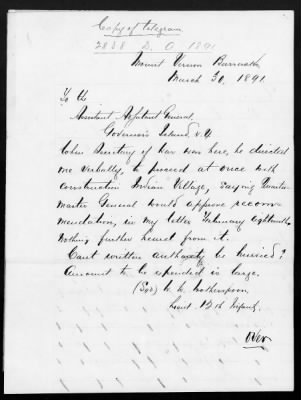 Copy of telegram
2838 D. O. 1891
Mount Vernon Barracks
March 30, 1891.
To the
Assistant Adjutant General,
Governor's Island, N.Y.
When Secretary of War was here, he directed
me verbally, to proceed at once with
construction Indian Village, saying Quarter-
master General would approve recom-
mendation, in my letter February eighteenth.
Nothing further heard from it.
Can't written authority be hurried?
Amount to be expended is large.
(Sgd) W. W. Wotherspoon
Lieut 12th Infantry.
Over